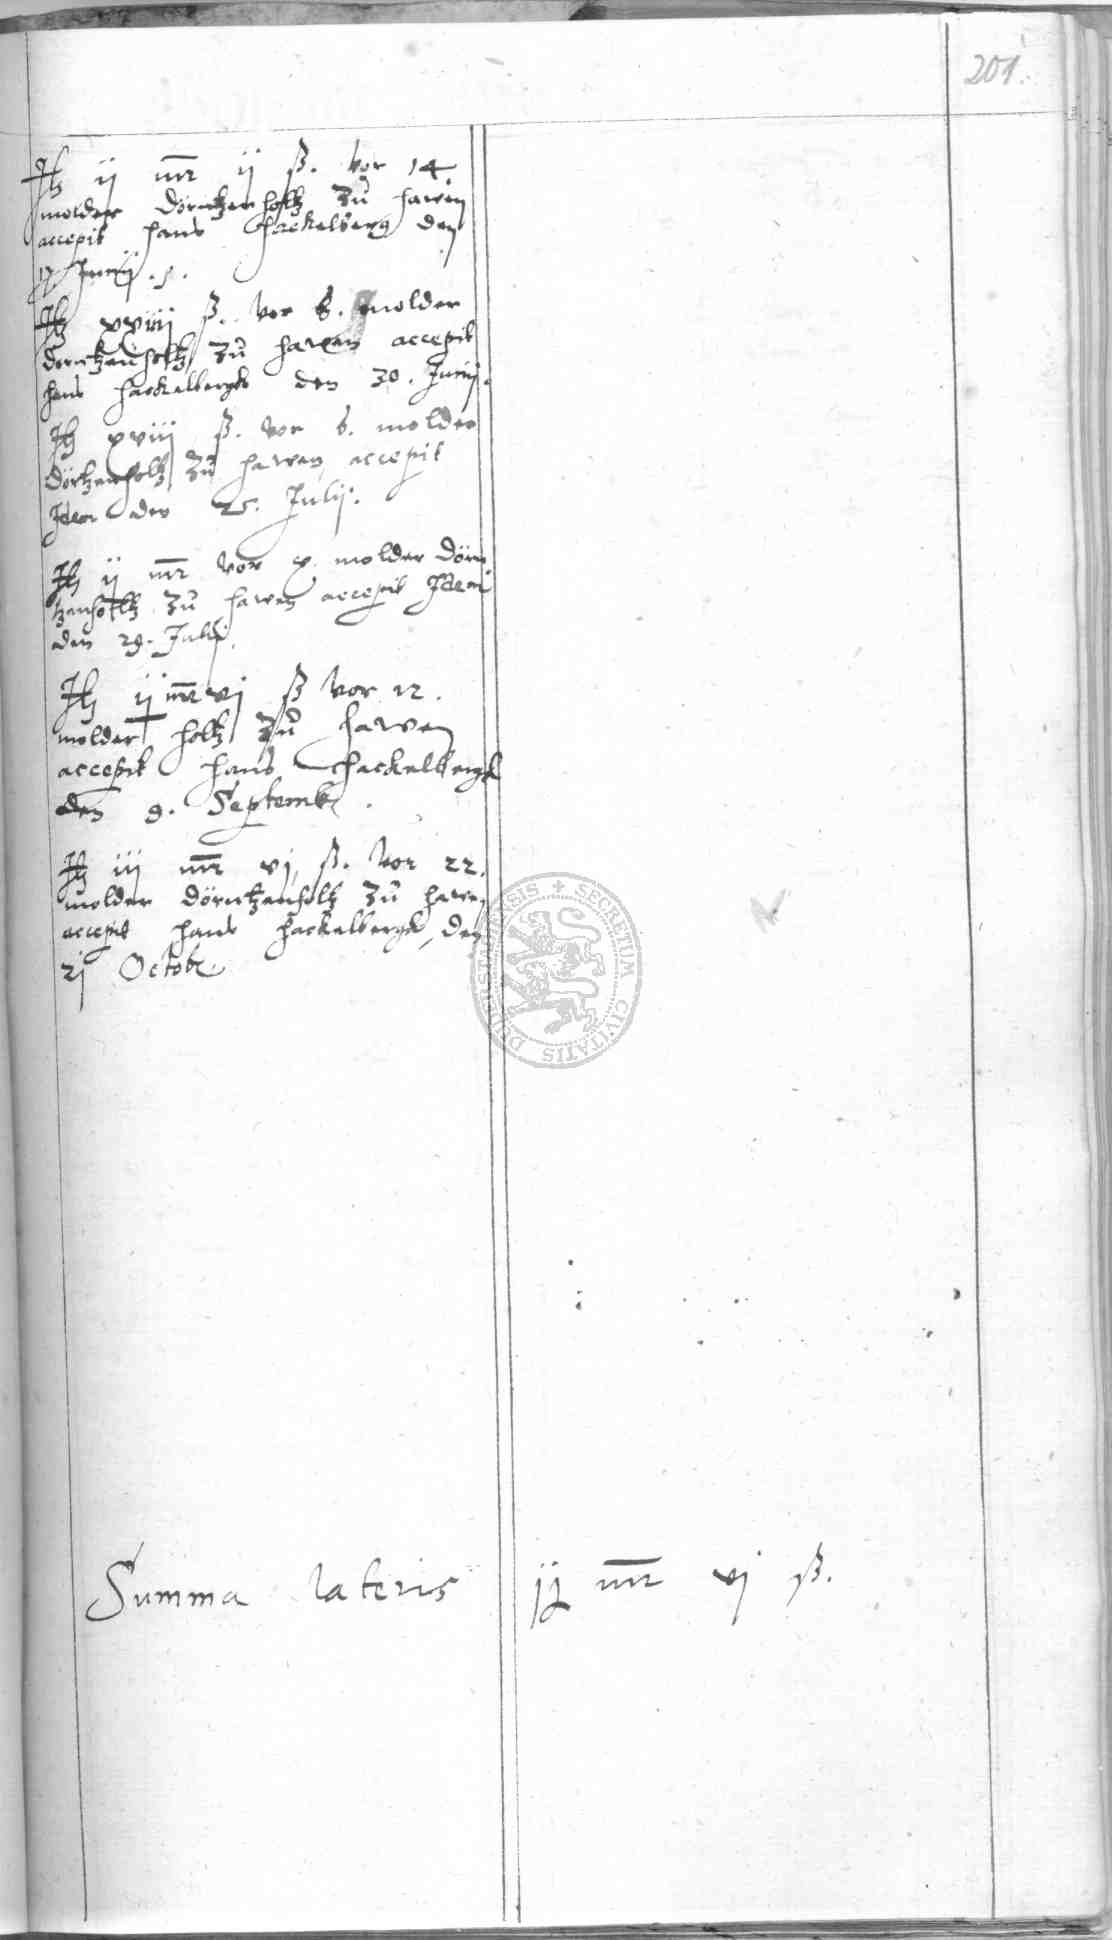 201.
It ij mr ij ß. vor 14
molder dörntzenholtz zů hawen
accepit hans Hackelberg den
17 Junij. ß.
It xviij ß. vor 6. molder
dörntzenholtz zů hawen accepit
hans hackelbergk den 30. Junij.
It xviij ß. vor 6. molder
dörtzenholtz zů hawen accepit
Idem den 25. Julij.
It ij mr vor x molder dörn
tzenholtz zů hawen accepit Idem
den 29. Julij.
It ij mr vj ß vor 12.
molder holtz zů hawen
accepit hans Hackelbergk
den 9. Septemb.
It iij mr vj ß. vor 22.
molder dörntzenholtz zů hawen
accepit hans hackelbergk, den
21 Octob.
SECRETUM CIVITATIS DERNSTADENSIS
Summa lateris mr vj ß.